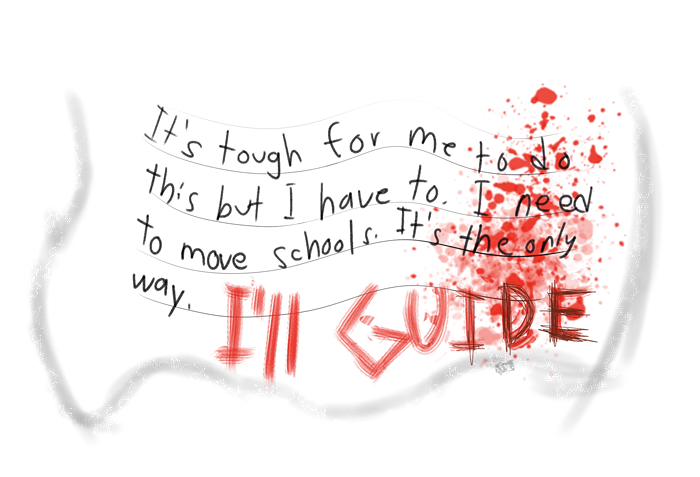 It's tough for me to do
this but I have to. I need
to move schools. It's the only
way.
I'll GUIDE